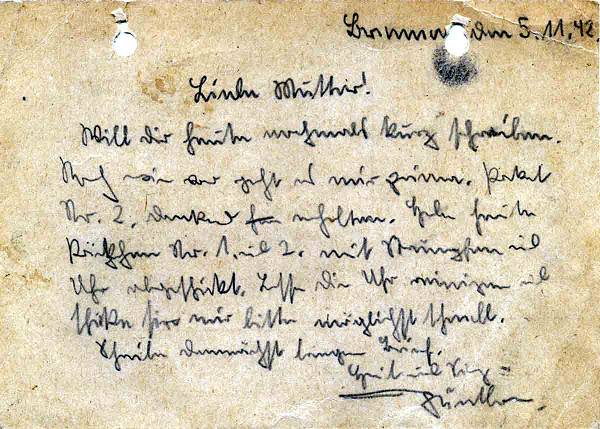 den 5.11.42.
Liebe Mutter!
Will dir heute nochmals kurz schreiben.
Nach wie vor geht es mir prima. Paket
Nr. 2. dankend erhalten. Habe heute
Päckchen Nr. 1. und 2. mit Strümpfen und
Uhr abgeschickt. Lasse die Uhr reinigen und
schicke sie mir bitte möglichst schnell.
Schreibe demnächst langen Brief.
Günther.